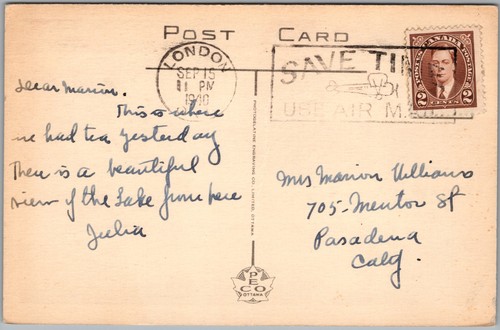 POST CARD
LONDON
SEP 15
11 PM
1940
SAVE TIME
USE AIR MAIL
POSTES CANADA POSTAGE
2 CENTS 2
Dear Marion.
This is where
we had tea yesterday
There is a beautiful
view of the Lake from here
Julia
Mrs Marion Williams
705-Mentor St
Pasadena
Calif.
PHOTOGELATINE ENGRAVING CO. LIMITED, OTTAWA
PECO
OTTAWA